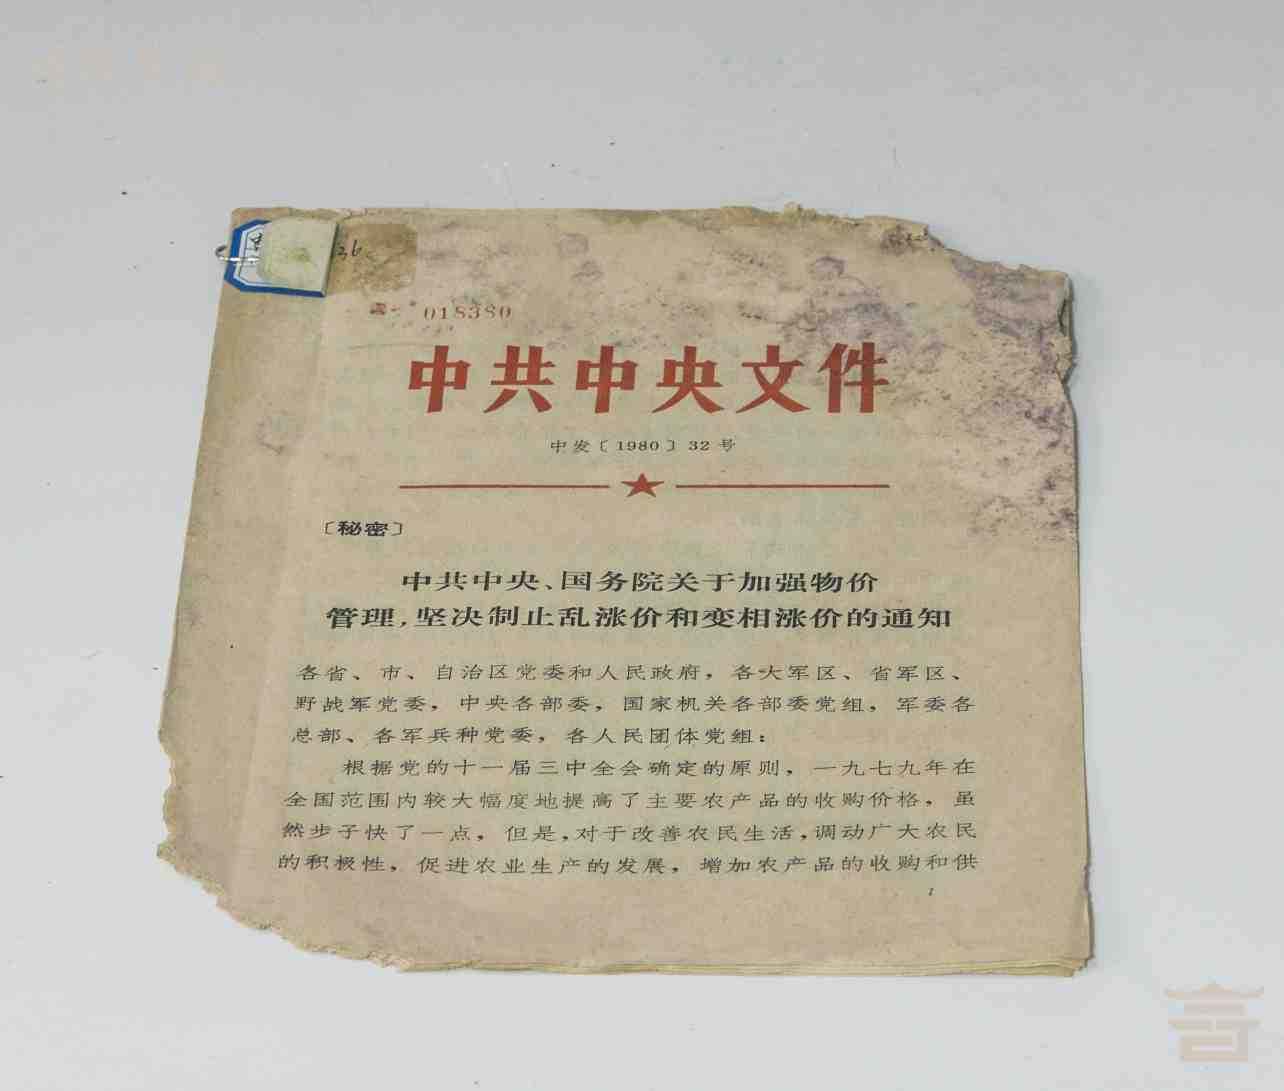 36
018380
中共中央文件
中发〔1980〕32号
〔秘密〕
中共中央、国务院关于加强物价
管理，坚决制止乱涨价和变相涨价的通知
各省、市、自治区党委和人民政府，各大军区、省军区、
野战军党委，中央各部委，国家机关各部委党组，军委各
总部、各军兵种党委，各人民团体党组：
根据党的十一届三中全会确定的原则，一九七九年在
全国范围内较大幅度地提高了主要农产品的收购价格，虽
然步子快了一点，但是，对于改善农民生活，调动广大农民
的积极性，促进农业生产的发展，增加农产品的收购和供
1